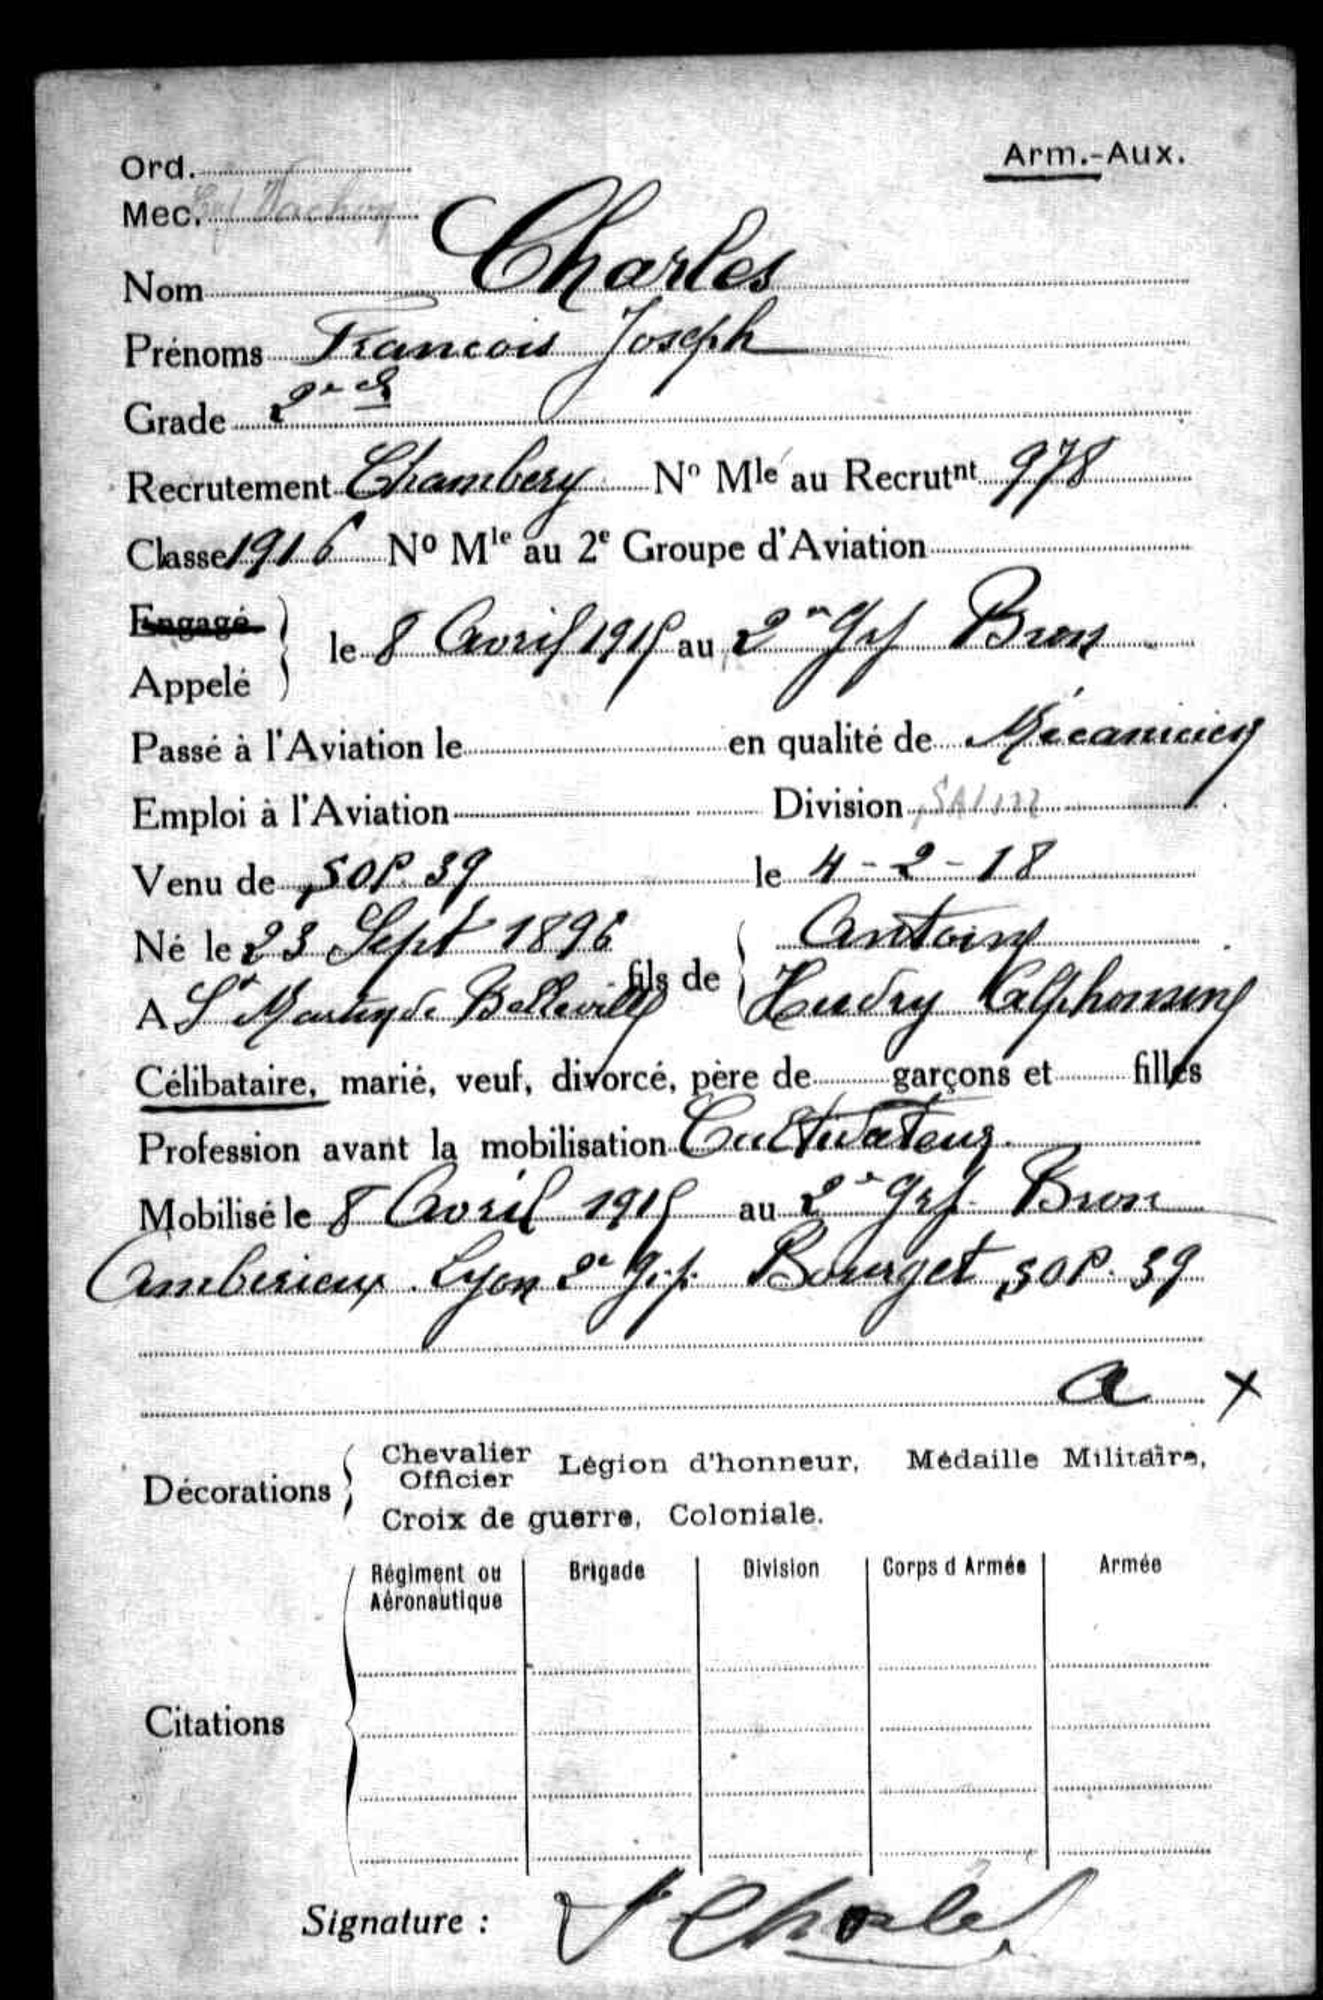 Ord. Arm.-Aux.
Mec.
Nom Charles
Prénoms Francois Joseph
Grade 2e cl
Recrutement Chambery No Mle au Recrutnt 978
Classe 1916 No Mle au 2e Groupe d'Aviation
Engagé
le 8 Avril 1915 au 2e Grp Bron
Appelé
Passé à l'Aviation le en qualité de Mécanicien
Emploi à l'Aviation Division
Venu de SOP. 39 le 4-2-18
Né le 23 Sept 1896 Antoine
fils de
A St Martin de Belleville Hudry Alphonsine
Célibataire, marié, veuf, divorcé, père de garçons et filles
Profession avant la mobilisation Cultivateur.
Mobilisé le 8 Avril 1915 au 2e Grp. Bron
Amberieux. Lyon 2e Grp. Bourget SOP. 39
a x
Décorations Chevalier Officier Légion d'honneur, Médaille Militaire,
Croix de guerre, Coloniale.
Régiment ou Aéronautique Brigade Division Corps d Armée Armée
Citations
Signature : Charles